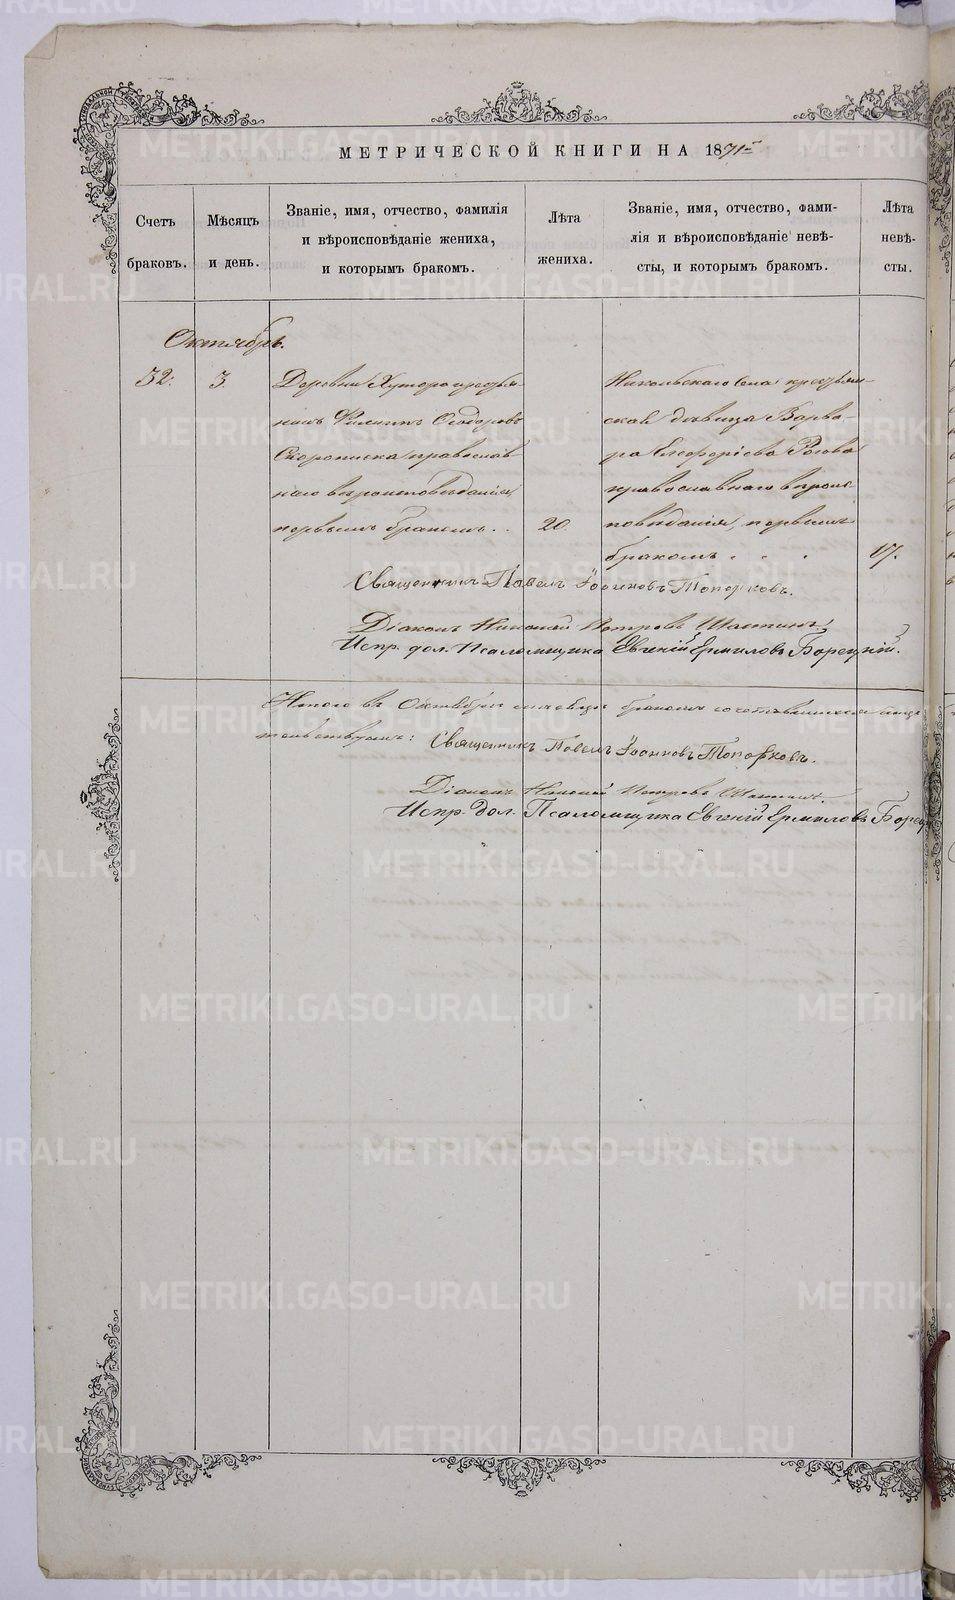 МЕТРИЧЕСКОЙ КНИГИ НА 1871й
Счетъ браковъ.
Мѣсяцъ и день.
Званіе, имя, отчество, фамилія
и вѣроисповѣданіе жениха,
и которымъ бракомъ.
Лѣта жениха.
Званіе, имя, отчество, фами-
лія и вѣроисповѣданіе невѣ-
сты, и которымъ бракомъ.
Лѣта невѣ-
сты.
Октябрь.
32.
3
Деревни Хутора крестья-
нинъ Филиппъ Ѳеодоровъ
Скорописка православ
наго вѣроисповѣданія,
первымъ бракомъ. .
20.
Никольскаго села крестьян-
ская дѣвица Варва-
ра Елеферіева Рогова
православнаго вѣроис
повѣданія, первымъ
бракомъ . . .
17.
Священникъ Павелъ Іоанновъ Топорковъ.
Діаконъ Николай Петровъ
Испр. дол. Псаломщика Евгеній Ермиловъ Борецкій.
Итого въ Октябрѣ мѣсяцѣ бракомъ сочетавшихся
Священникъ Павелъ Іоанновъ Топорковъ.
Діаконъ Николай Петровъ
Испр. дол. Псаломщика Евгеній Ермиловъ Борец
METRIKI.GASO-URAL.RU